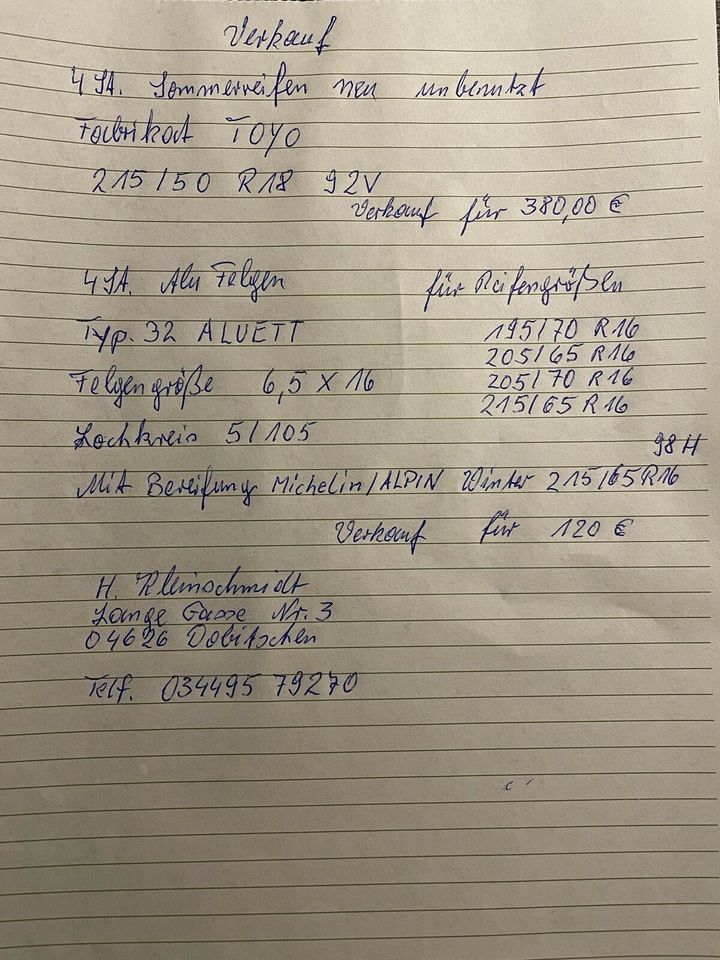 Verkauf
4 St. Sommerreifen neu unbenutzt
Fabrikat TOYO
215/50 R18 92V
Verkauf für 380,00 €
4 St. Alu Felgen für Reifengrößen
Typ. 32 ALUETT 195/70 R16
205/65 R16
Felgengröße 6,5 X 16 205/70 R16
215/65 R16
Lochkreis 5/105
98 H
Mit Bereifung Michelin/ALPIN Winter 215/65 R16
Verkauf für 120 €
H. Kleinschmidt
Lange Gasse Nr. 3
04626 Dobitschen
Telf. 034495 79270